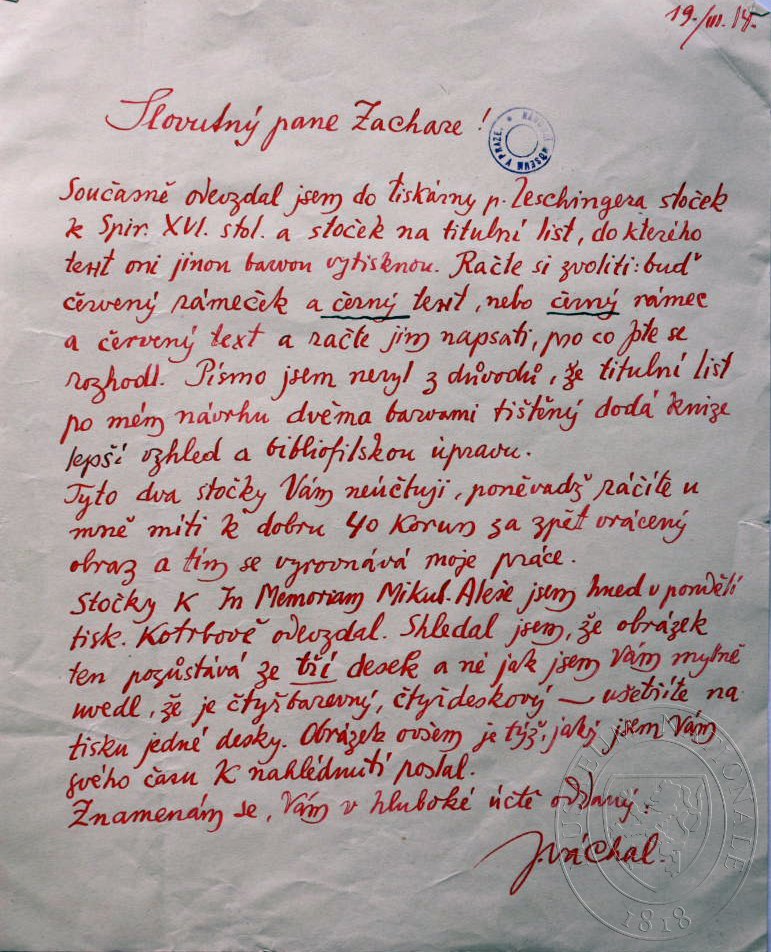 19./III. 14.
Slovutný pane Zachaře!
NÁRODNÍ MUSEUM V PRAZE.
Současně odevzdal jsem do tiskárny p. Leschingera štoček
k Spir. XVI. stol. a štoček na titulní list, do kterého
text oni jinou barvou vytisknou. Račte si zvoliti: buď
červený rámeček a černý text, nebo černý rámec
a červený text a račte jim napsati, pro co jste se
rozhodl. Písmo jsem neryl z důvodů, že titulní list
po mém návrhu dvěma barvami tištěný dodá knize
lepší vzhled a bibliofilskou úpravu.
Tyto dva štočky Vám neúčtuji, poněvadž ráčíte u
mně míti k dobru 40 Korun za zpět vrácený
obraz a tím se vyrovnává moje práce.
Štočky K In Memoriam Mikul. Aleše jsem hned v pondělí
tisk. Kotrbově odevzdal. Shledal jsem, že obrázek
ten pozůstává ze tří desek a né jak jsem Vám mylně
uvedl, že je čtyřbarevný, čtyřdeskový — ušetříte na
tisku jedné desky. Obrázek ovšem je týž, jaký jsem Vám
svého času K nahlédnutí poslal.
Znamenám se, Vám v hluboké úctě oddaný.
J. Váchal.
MUSEUM NATIONALE
1818